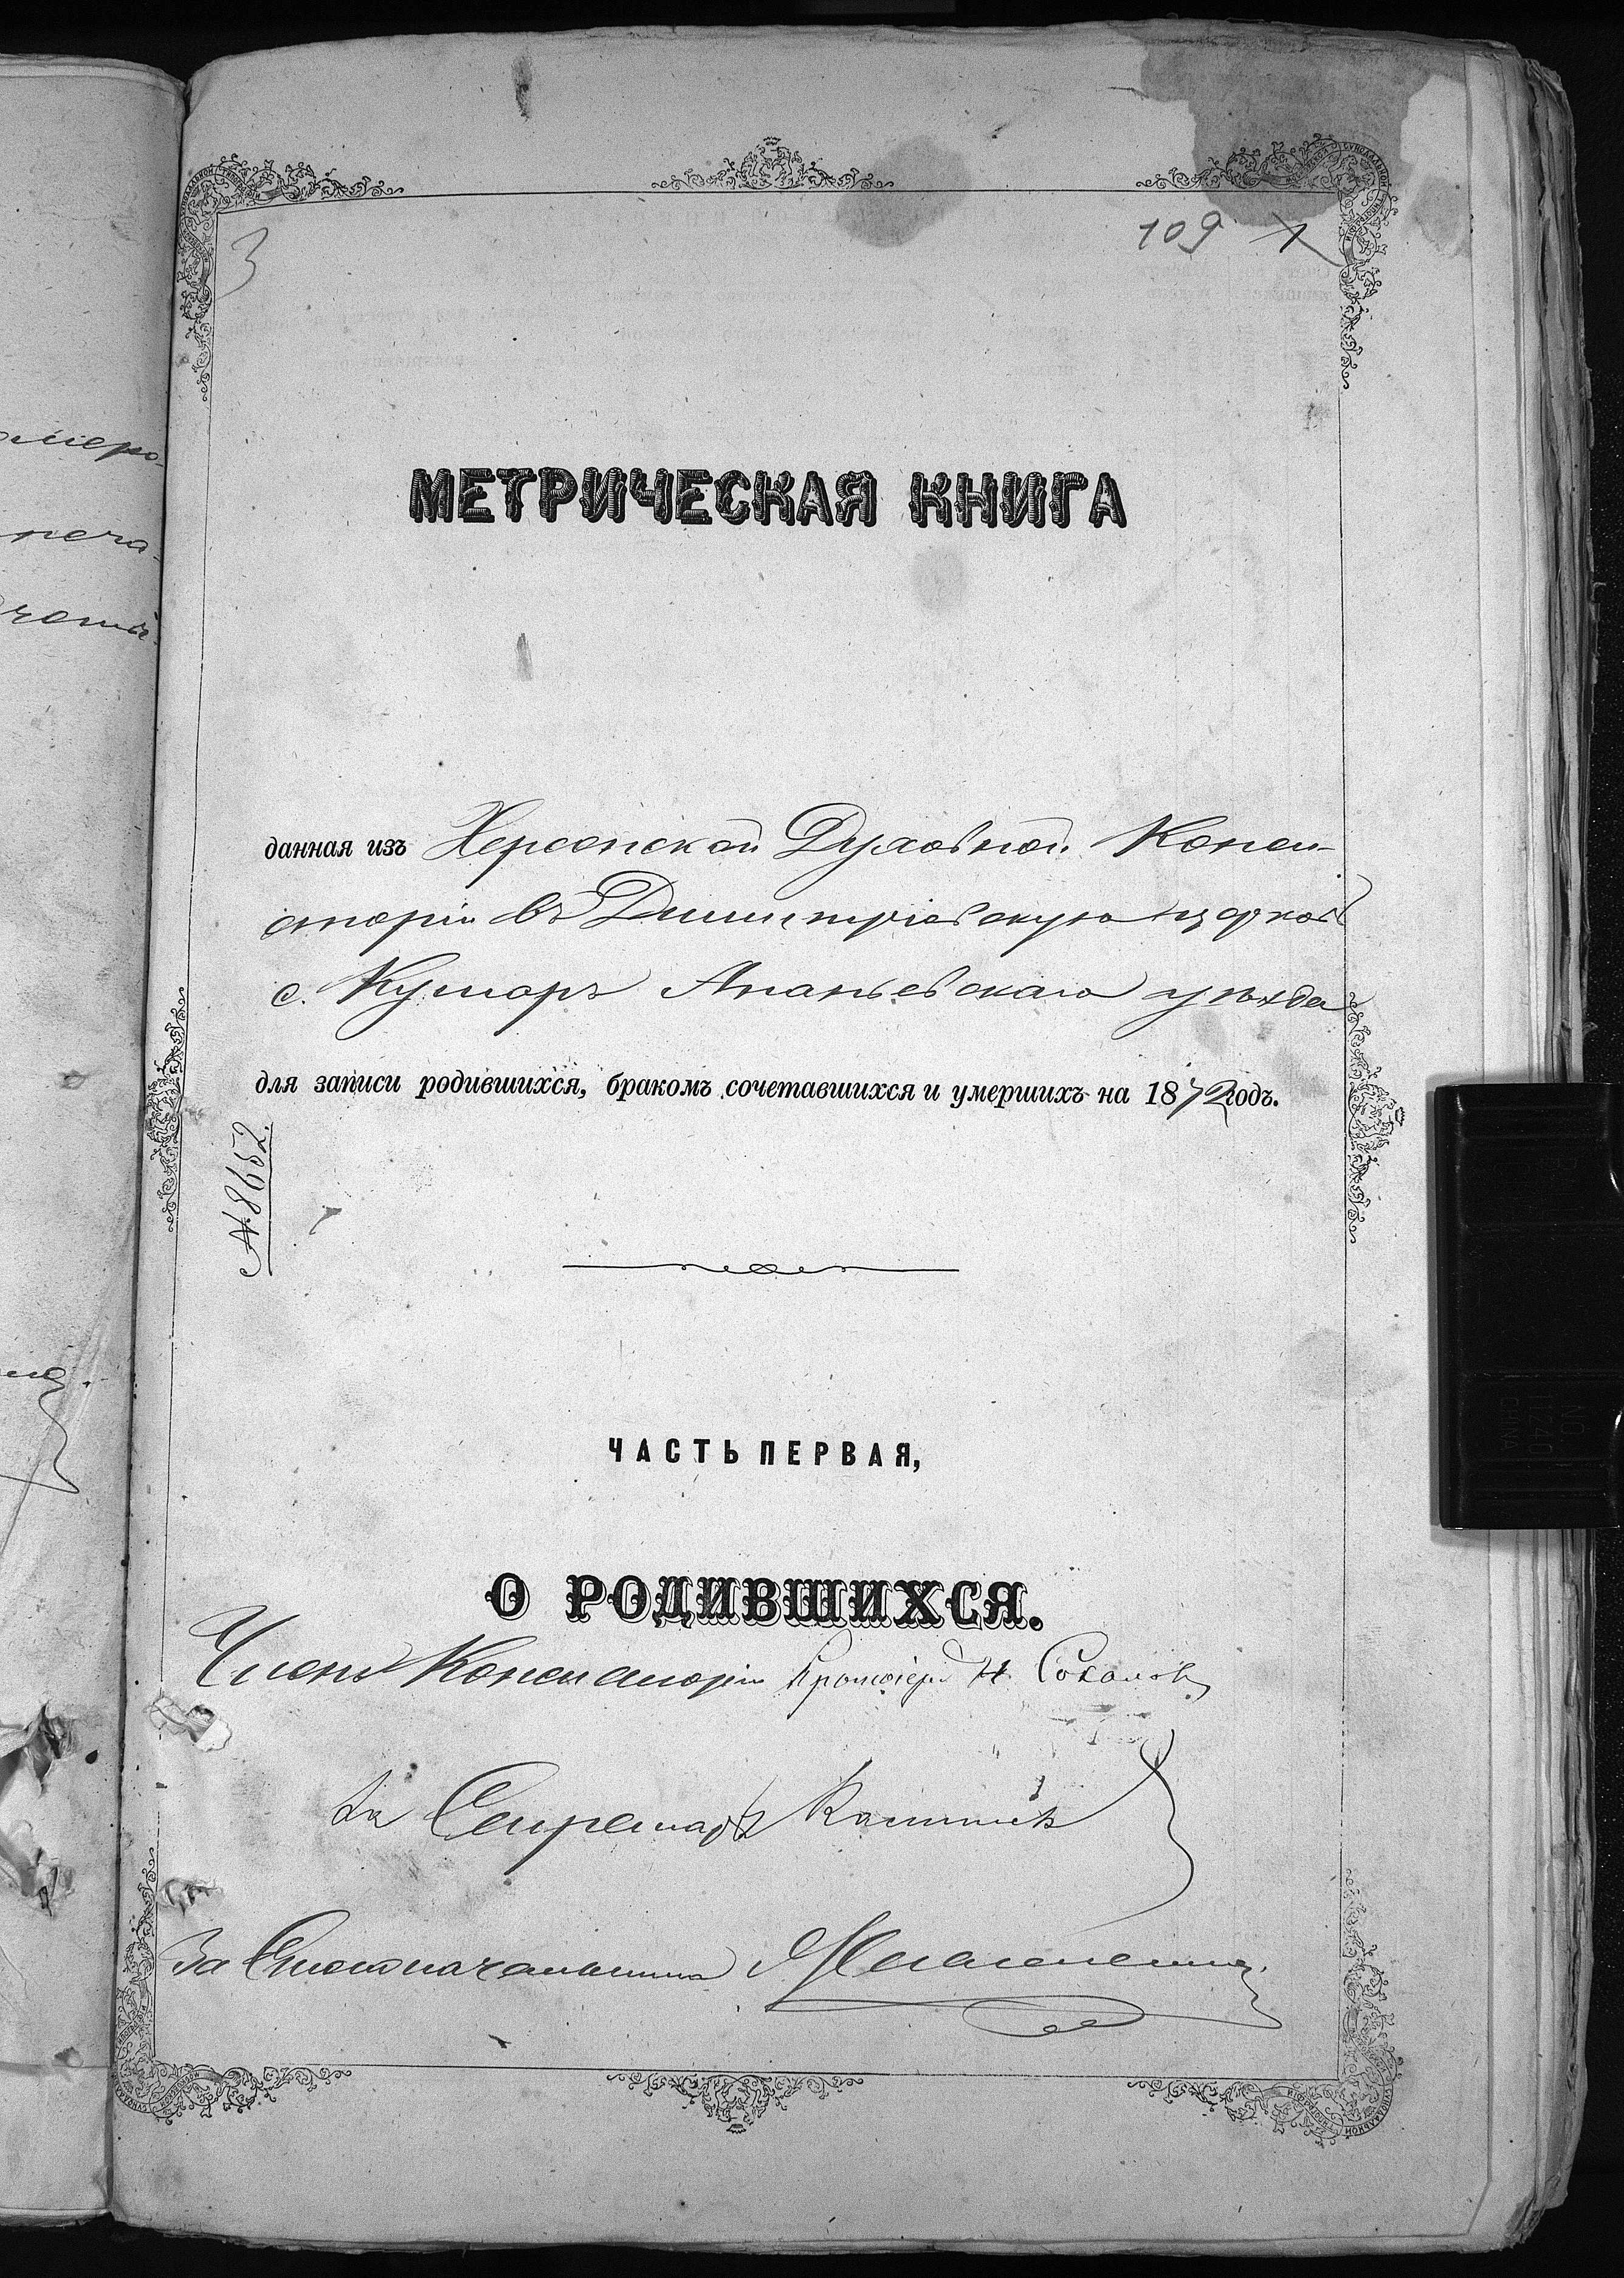 3
109 1
МЕТРИЧЕСКАЯ КНИГА
данная изъ Херсонской Духовной Конси-
сторіи въ Димитріевскую церковь
с. Кумаръ Ананьевскаго уѣзда
для записи родившихся, бракомъ сочетавшихся и умершихъ на 1872 годъ.
№ 8652.
ЧАСТЬ ПЕРВАЯ,
О РОДИВШИХСЯ.
Членъ Консисторіи Протоіерей Н. Соколовъ
За Секретаря
За Столоначальника